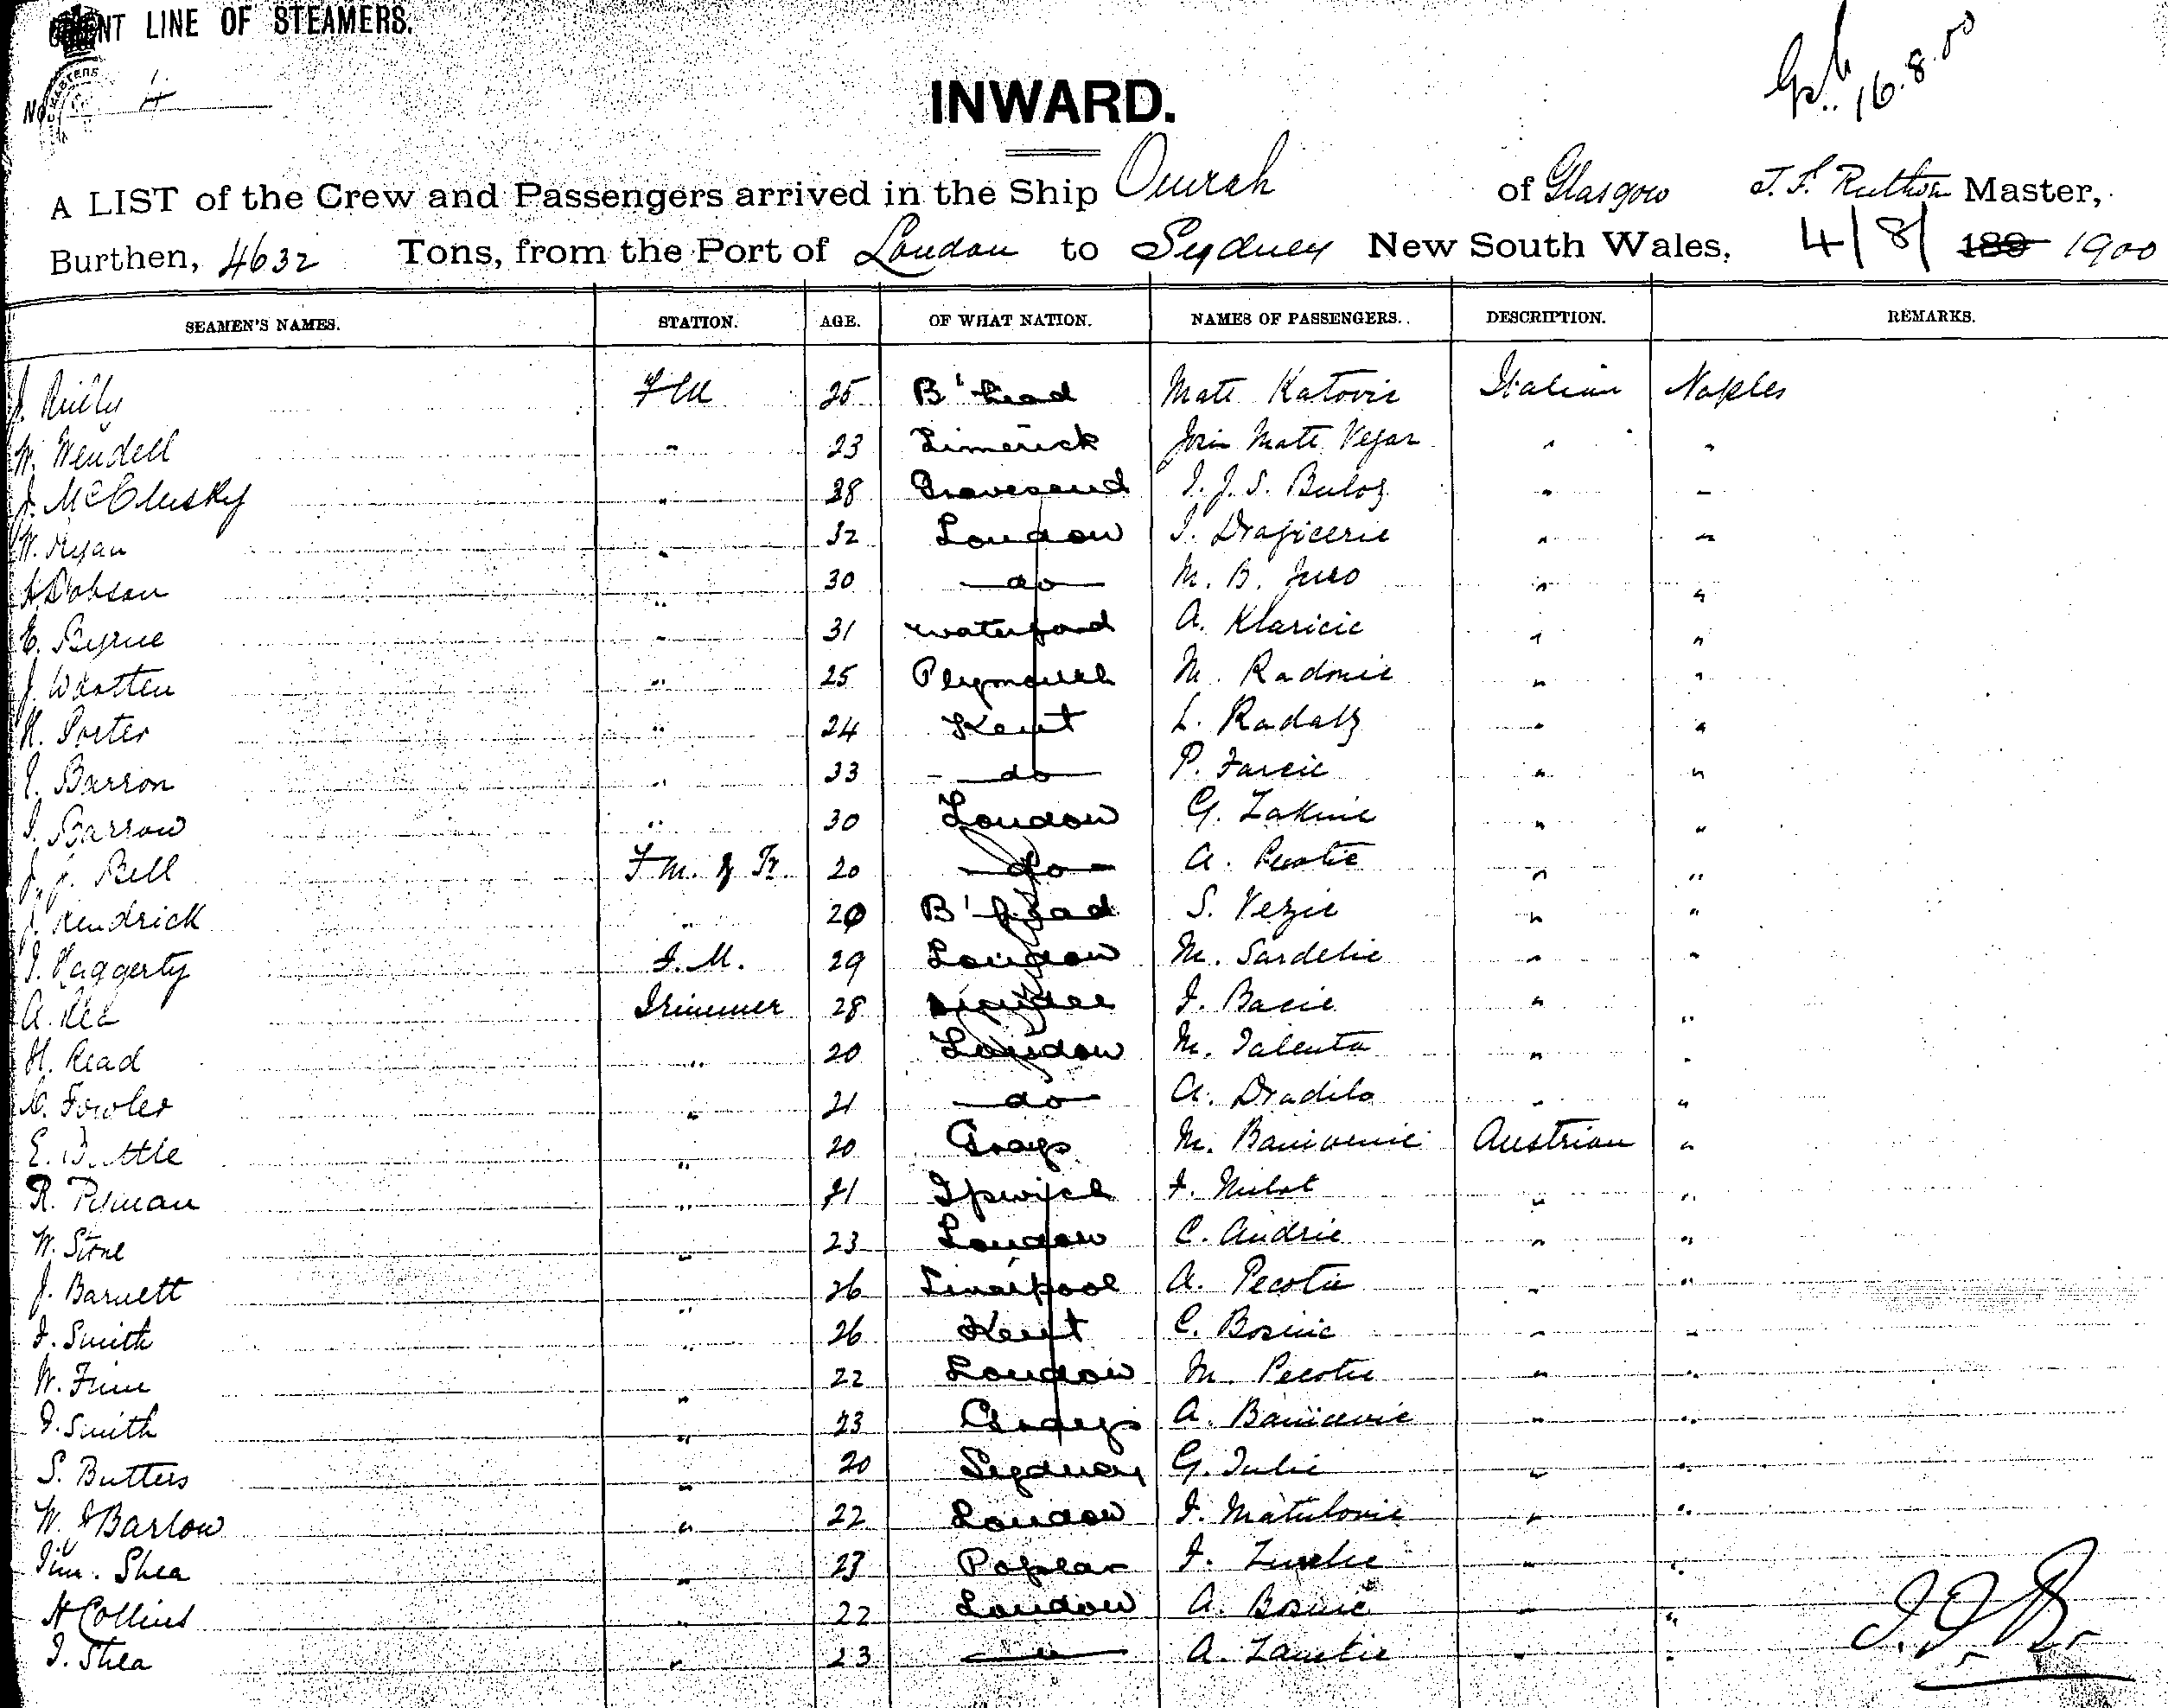 ORIENT LINE OF STEAMERS.
No. 4
INWARD.
16.8.00
A LIST of the Crew and Passengers arrived in the Ship Oruba of Glasgow J. F. Ruthven Master,
Burthen, 4632 Tons, from the Port of London to Sydney New South Wales, 4/8/ 189 1900
SEAMEN'S NAMES. STATION. AGE. OF WHAT NATION. NAMES OF PASSENGERS. DESCRIPTION. REMARKS.
J. Reilly 25 B'head Mate Katovic Italian Naples
W. Wendell " 23 Limerick Mate Vejar " "
J. McClusky " 38 Gravesend I. J. S. Buloz " "
W. Ryan " 32 London I. Dragicevic " "
A. Dobson " 30 do M. B. Juro " "
E. Byrne " 31 Waterford A. Klaricic " "
J. Wootten " 25 Plymouth M. Radonic " "
H. Porter " 24 Kent L. Radatz " "
Barron " 33 do P. Farcic " "
Barrow " 30 London G. Zakinic " "
J. J. Bell F.M. & Tr. 20 do A. Pecotic " "
J. Kendrick " 20 B'head S. Vezic " "
Haggerty F.M. 29 London M. Sardelic " "
A. Trimmer 28 Dundee Bacic " "
H. Read " 20 London M. Talenta " "
Fowler " 21 do A. Dradilo " "
E. " 20 Grays M. Banicevic Austrian "
R. Pitman " 21 Ipswich Milat " "
W. Stone " 23 London C. Andric " "
J. Barnett " 26 Liverpool A. Pecotic " "
Smith " 26 Kent C. Bosnic " "
W. " 22 London M. Pecotic " "
Smith " 23 Grays A. Banicevic " "
S. Butters " 20 Sydney G. Tulic " "
W. Barlow " 22 London Matulovic " "
Tim. Shea " 23 Poplar " "
H Collins " 22 London A. Bosnic " "
Shea " 23 " A. " "